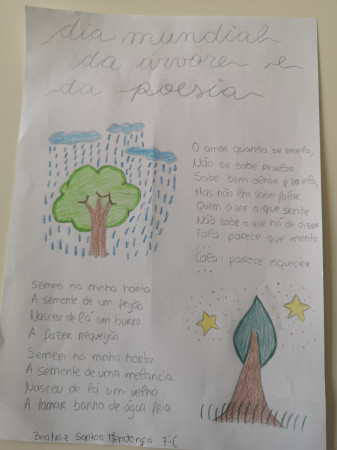 dia mundial
da árvore e
da poesia
O amor, quando se revela,
Não se sabe revelar,
Sabe bem olhar p'ra ela,
Mas não lhe sabe falar
Quem dizer o que sente
Não sabe o que há de dizer
Fala: parece que mente
Cala: parece esquecer
Semeei na minha horta
A semente de um feijão
Nasceu de lá um burro
A fazer requeijão
Semeei na minha horta
A semente de uma melancia
Nasceu de lá um velho
A tomar banho de água fria
Beatriz Santos Mendonça 7ºC